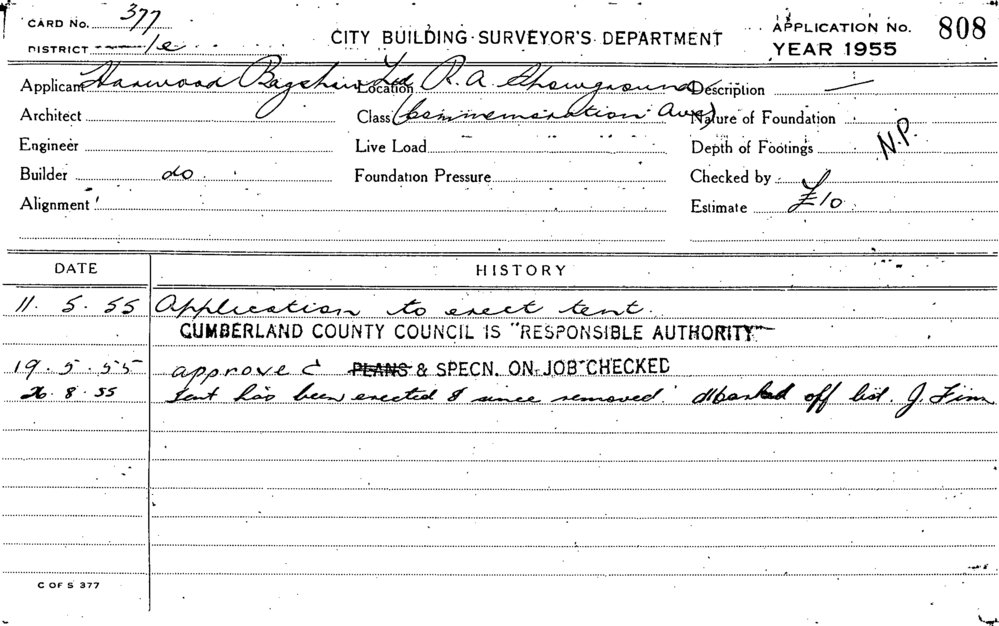 CARD No. 377
DISTRICT
CITY BUILDING SURVEYOR'S DEPARTMENT
APPLICATION No. 808
YEAR 1955
Applicant Harwood Bagshaw Ltd
Location R. A. Showground
Description —
Architect
Class (Commemoration Ave)
Nature of Foundation
Engineer
Live Load
Depth of Footings N.P.
Builder do
Foundation Pressure
Checked by
Alignment
Estimate £10
DATE HISTORY
11. 5. 55 Application to erect tent.
CUMBERLAND COUNTY COUNCIL IS "RESPONSIBLE AUTHORITY"
19. 5. 55 approved PLANS & SPECN. ON JOB CHECKED
26. 8. 55 Tent has been erected & since removed. Marked off list. J. Finn
C OF S 377